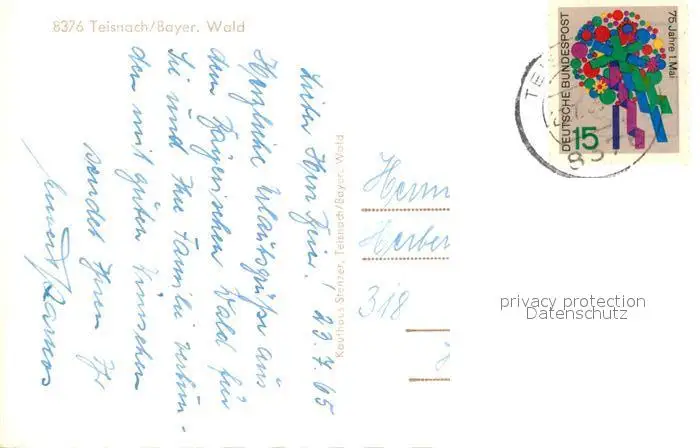 8376 Teisnach/Bayer. Wald
Lieber Herr ! 29.7.65
Herzliche Urlaubsgrüße aus
dem Bayerischen Wald für
Sie und Ihre Familie verbun-
den mit guten Wünschen
sendet Ihnen Ihr
Kaufhaus Stenzer, Teisnach/Bayer. Wald
Herrn
Herber
318
privacy protection
Datenschutz
DEUTSCHE BUNDESPOST
75 Jahre 1. Mai
15
TEI
837